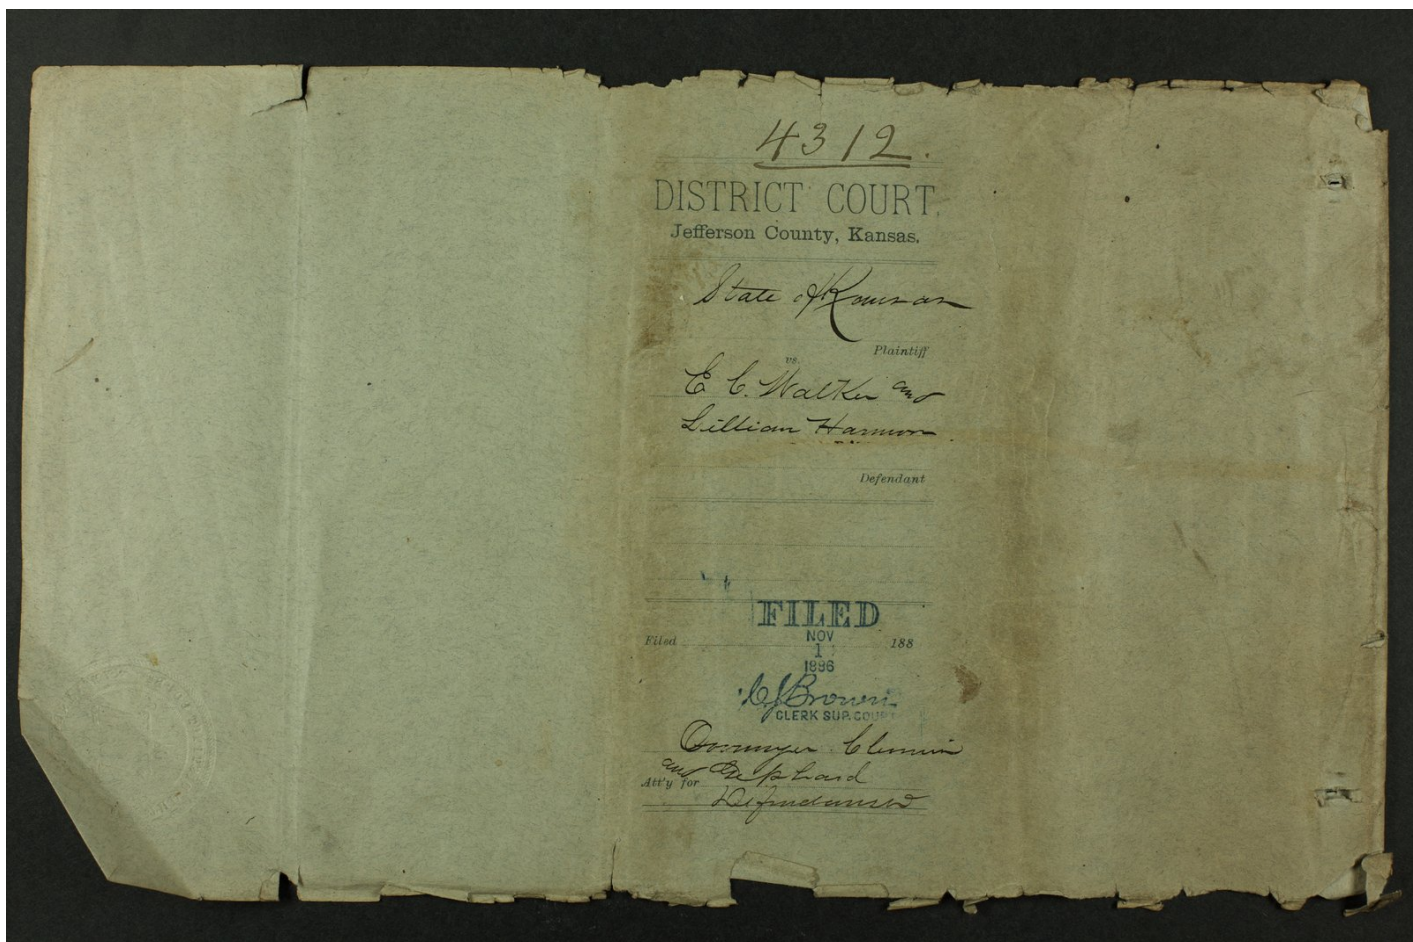 4312.
DISTRICT COURT,
Jefferson County, Kansas.
State of Kansas
Plaintiff
vs.
E. C. Walker and
Lillian Harmon
Defendant
FILED
Filed NOV 188
1
1886
C J Brown
CLERK SUP. COURT
Clemens
and Gephard
Att'y for
Defendants